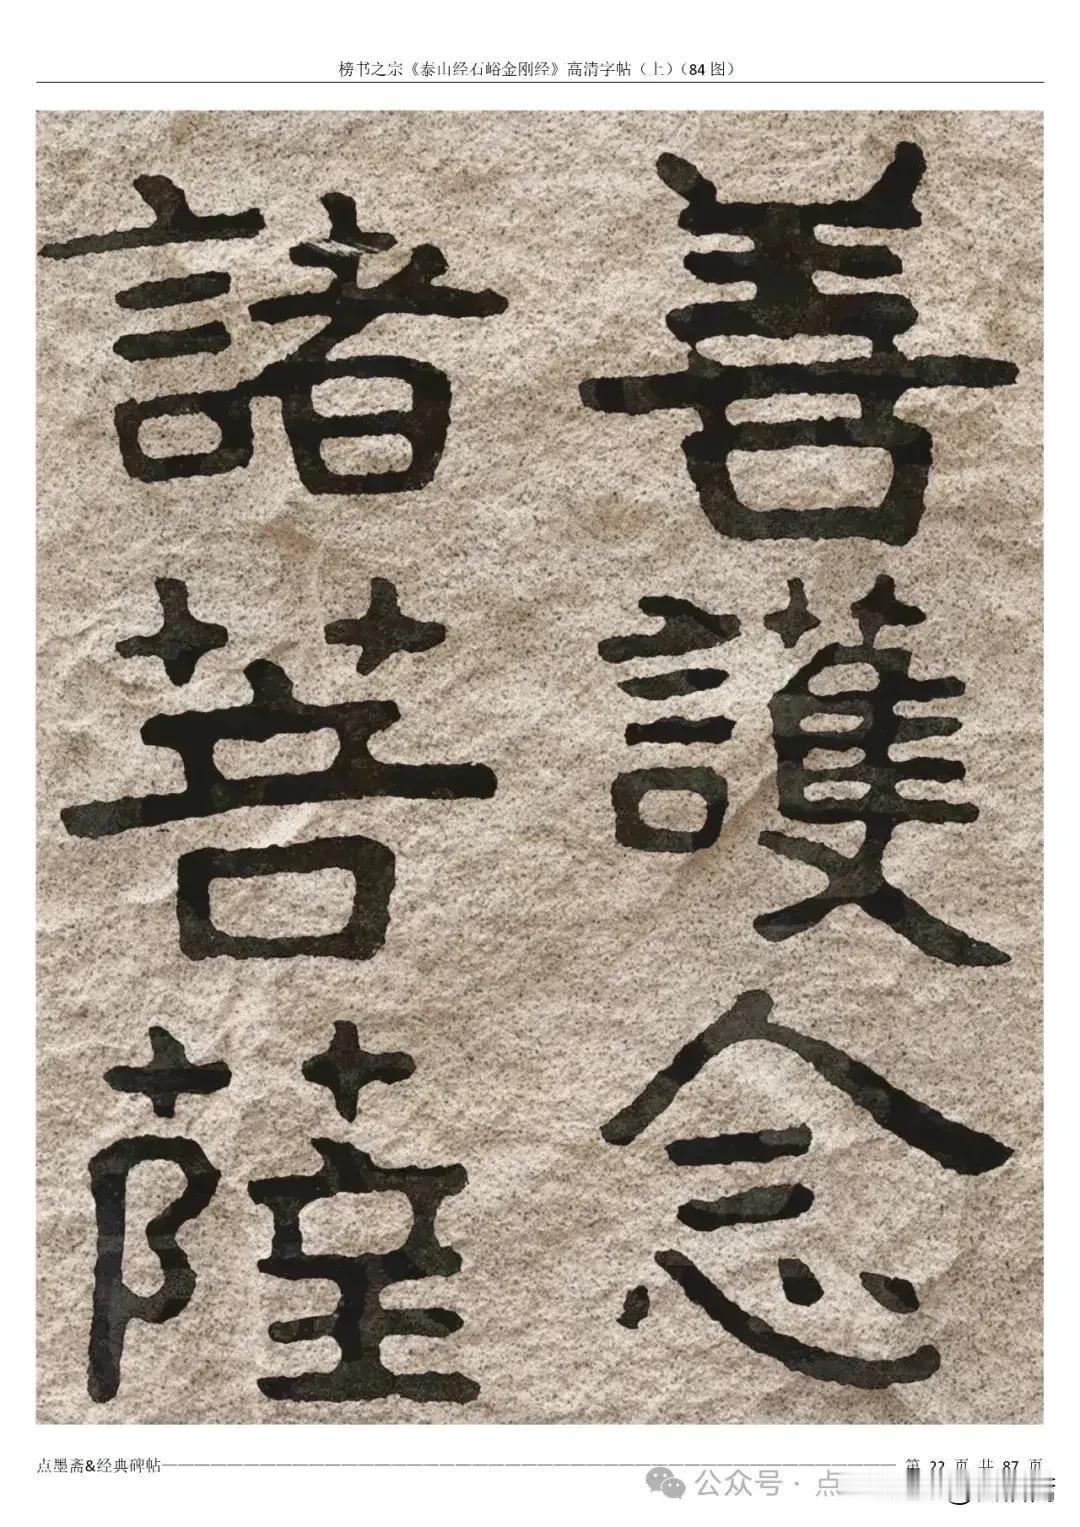 榜书之宗《泰山经石峪金刚经》高清字帖（上）（84 图）
善護念
諸菩薩
点墨斋&经典碑帖
第 22 页 共 87 页
公众号 · 点